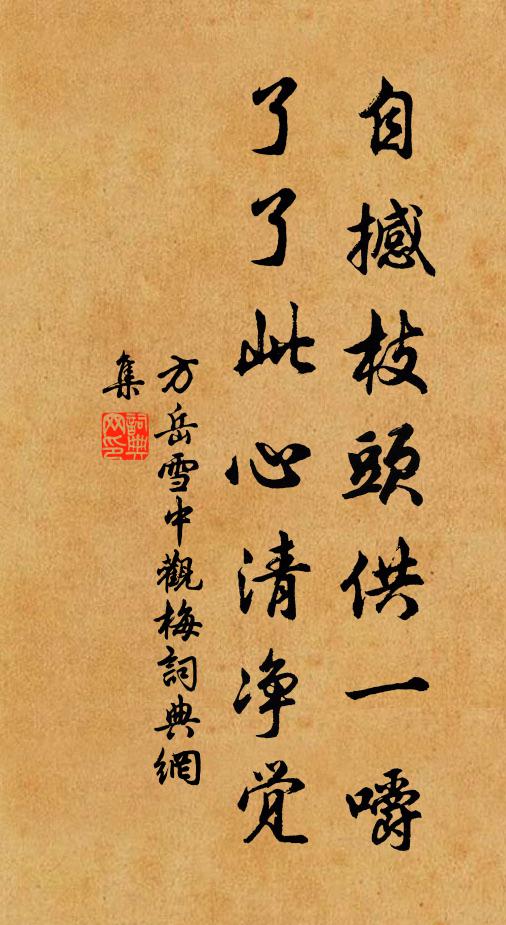 自撼枝頭供一嚼
了了此心清净觉
方岳雪中觀梅詞典網
集
詞典
网印